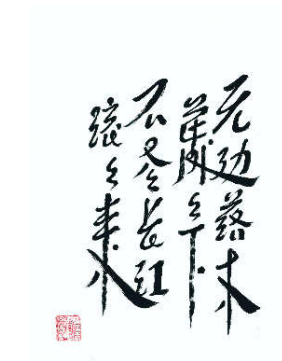 无边落木
萧々下
不尽长江
滚々来